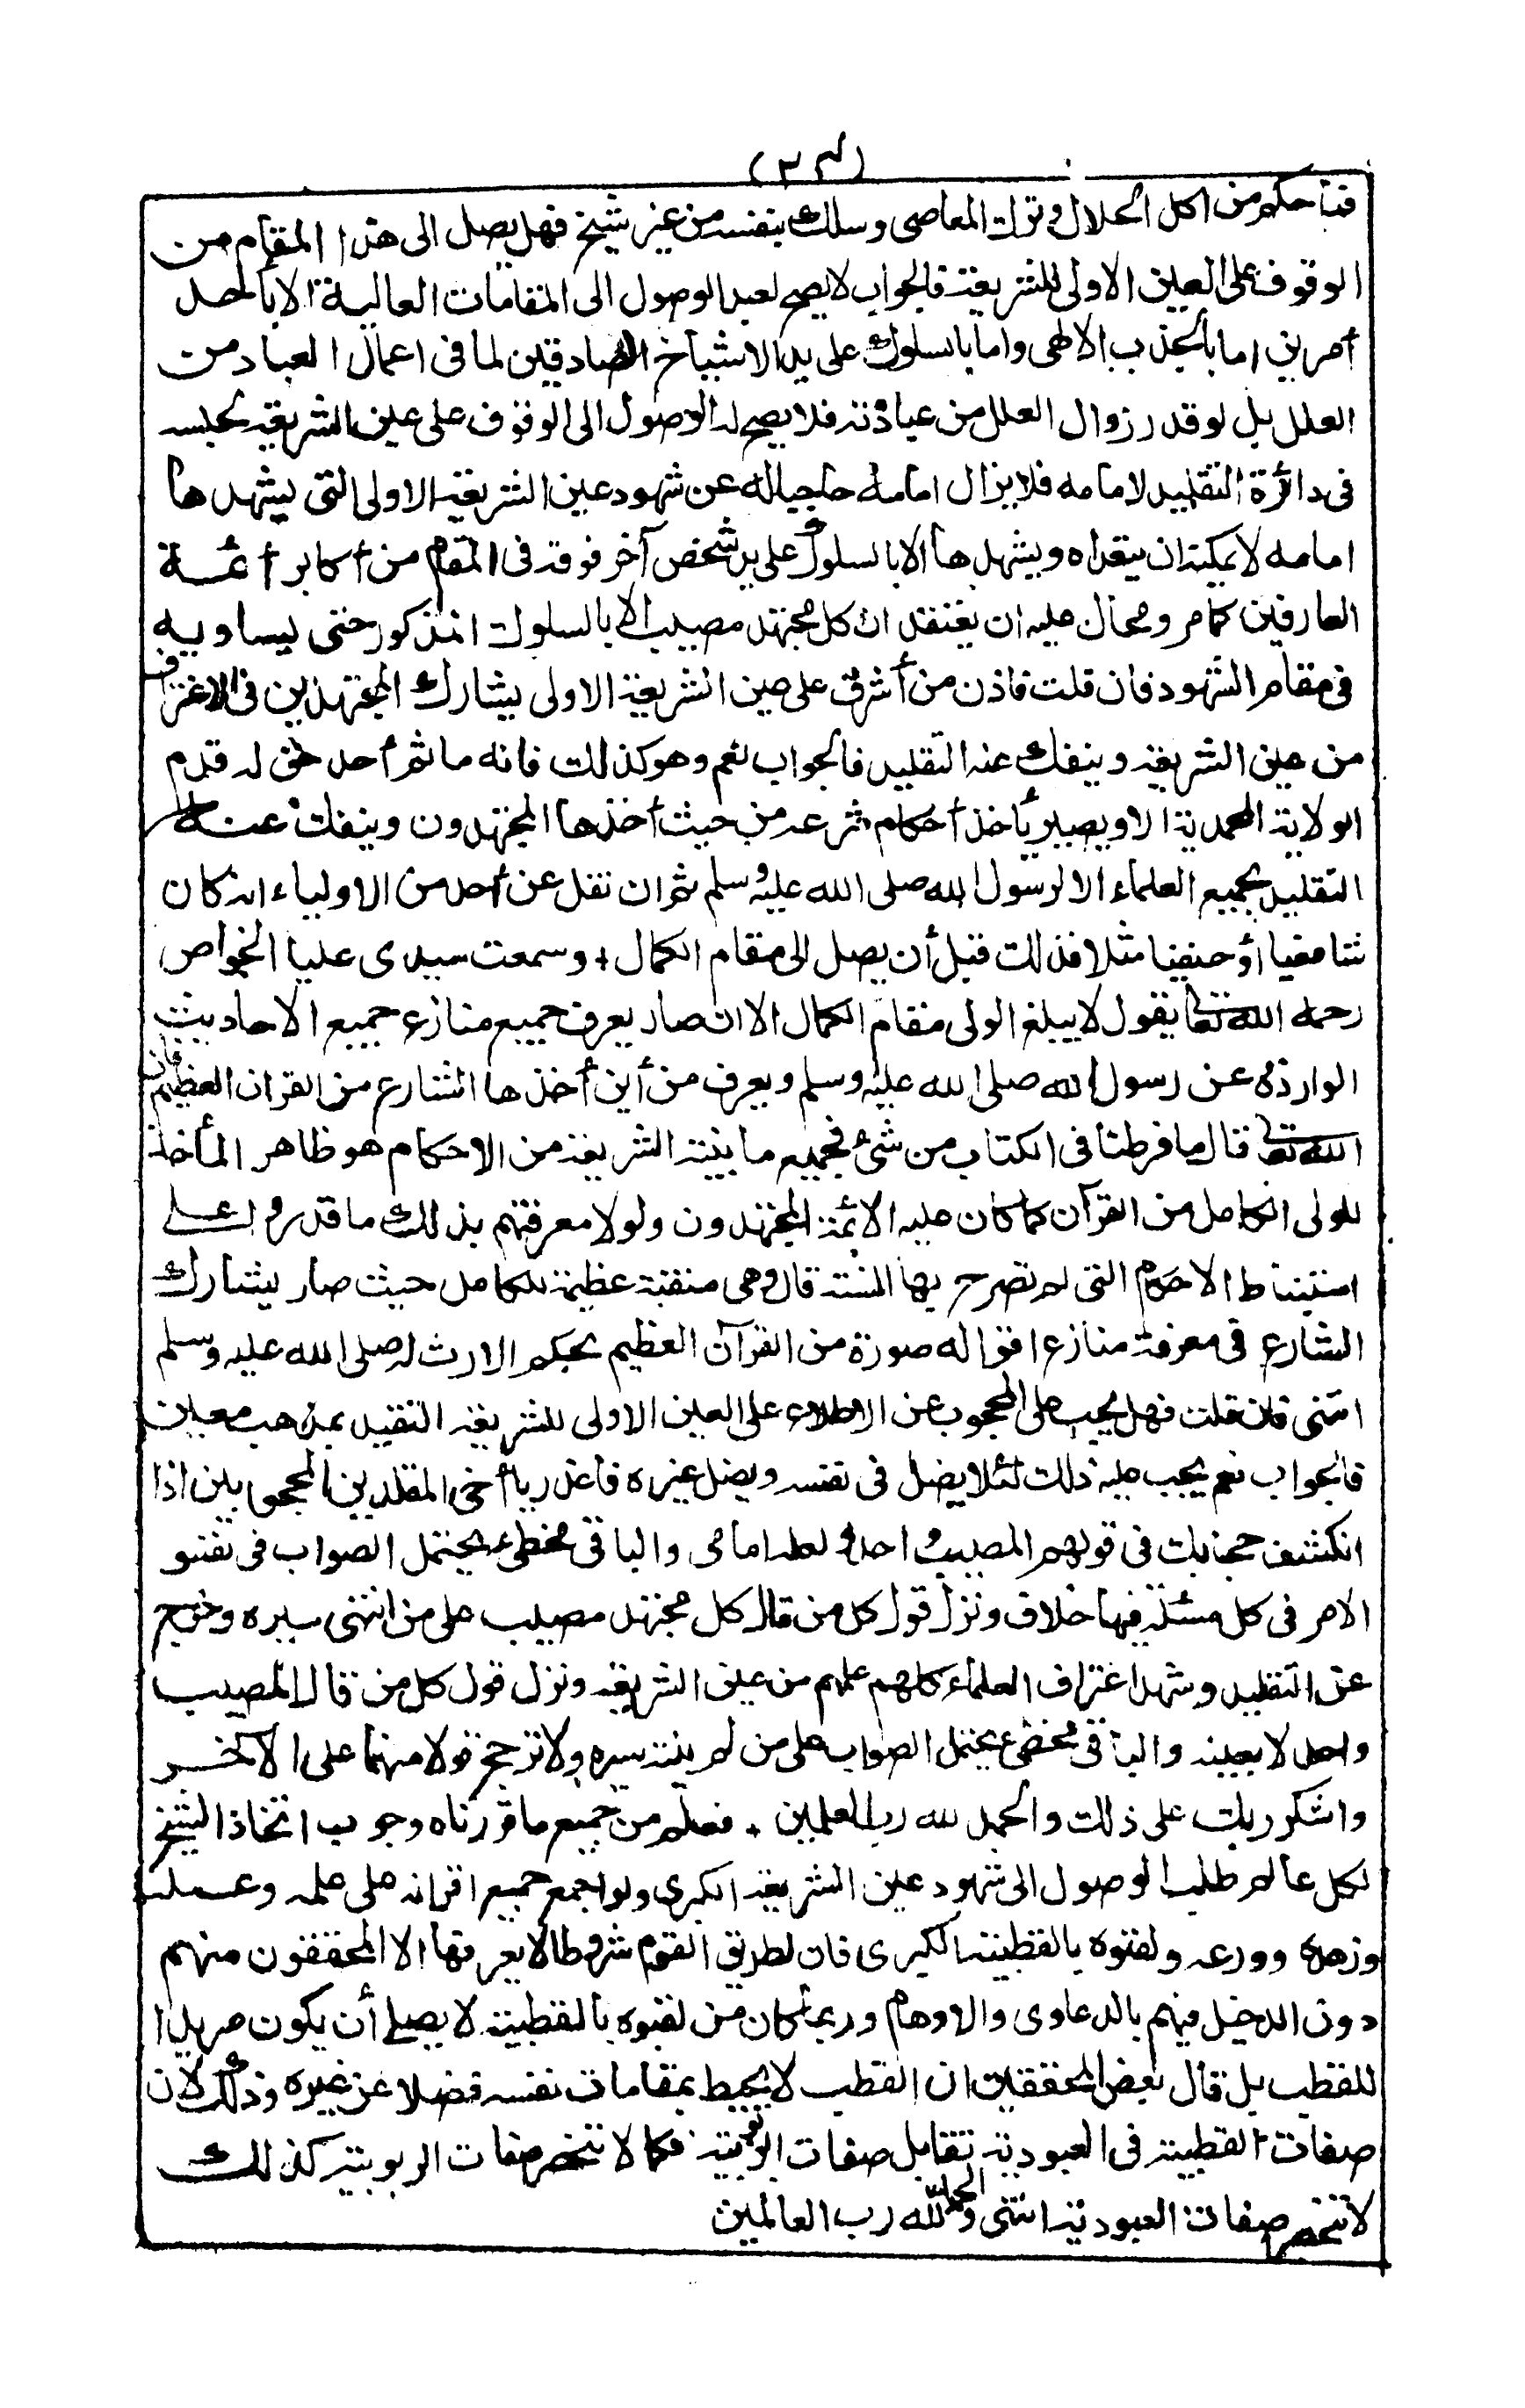 (٣٤)
فبأحكم من اكل الحلال وترك المعاصى وسلك بنفسه من غير شيخ فهل يصل الى هذا المقام من
الوقوف على العين الاولى للشريعة فالجواب لا يصح لعبد الوصول الى المقامات العالية الا بأحد
أمرين اما بالجذب الالهى واما بالسلوك على يد الاشياخ الصادقين لما فى اعمال العباد من
العلل بل لو قدر زوال العلل من عبادته فلا يصح له الوصول الى الوقوف على عين الشريعة لحبسه
فى دائرة التقليد لامامه فلا يزال امامه حاجبا له عن شهود عين الشريعة الاولى التى يشهدها
امامه لا يمكنه ان يتعداه ويشهدها الا بالسلوك على يد شخص آخر فوقه فى المقام من أكابر أئمة
العارفين كما مر ومحال عليه ان يعتقد ان كل مجتهد مصيب الا بالسلوك المذكور حتى يساويه
فى مقام الشهود فان قلت فاذن من أشرف على عين الشريعة الاولى يشارك المجتهدين فى الاغتراف
من عين الشريعة وينفك عنه التقليد فالجواب نعم وهو كذلك فانه ما ثم أحد حق له قدم
الولاية المحمدية الا ويصير يأخذ أحكام شرعه من حيث أخذها المجتهدون وينفك عنه
التقليد لجميع العلماء الا لرسول الله صلى الله عليه وسلم ثم ان نقل عن أحد من الاولياء انه كان
شافعيا أو حنفيا مثلا فذلك قبل أن يصل الى مقام الكمال + وسمعت سيدى عليا الخواص
رحمه الله تعا يقول لا يبلغ الولى مقام الكمال الا ان صار يعرف جميع منازع جميع الاحاديث
الواردة عن رسول الله صلى الله عليه وسلم ويعرف من أين أخذها الشارع من القران العظيم فان
الله تعا قال ما فرطنا فى الكتاب من شئ فجميع ما بينته الشريعة من الاحكام هو ظاهر المأخذ
للولى الكامل من القرآن كما كان عليه الائمة المجتهدون ولولا معرفتهم بذلك ما قدروا على
استنباط الاحكام التى لم تصرح بها السنة قال وهى منقبة عظيمة للكامل حيث صار يشارك
الشارع فى معرفة منازع اقواله صورة من القرآن العظيم بحكم الارث له صلى الله عليه وسلم
انتهى فان قلت فهل يجب على المحجوب عن الاطلاع على العين الاولى للشريعة التقيد بمذهب معين
فالجواب نعم يجب عليه ذلك لئلا يضل فى نفسه ويضل غيره فاعذر يا أخى المقلدين المحجوبين اذا
انكشف حجابك فى قولهم المصيب واحد لعله امامى والباقى مخطئ يحتمل الصواب فى نفس
الامر فى كل مسئلة فيها خلاف ونزل قول كل من قال كل مجتهد مصيب على من انتهى سيره وخرج
عن التقليد وشهد اغتراف العلماء كلهم علمهم من عين الشريعة ونزل قول كل من قال المصيب
واحد لا بعينه والباقى مخطئ يحتمل الصواب على من لم ينته سيره ولا ترجح قولا منهما على الاخر
واشكر ربك على ذلك والحمد لله رب العلمين + فعلم من جميع ما قررناه وجوب اتخاذ الشيخ
لكل عالم طلب الوصول الى شهود عين الشريعة الكبرى ولو اجمع جميع اقرانه على علمه وعمله
وزهده وورعه ولقبوه بالقطبية الكبرى فان لطريق القوم شروطا لا يعرفها الا المحققون منهم
دون الدخيل فيهم بالدعاوى والاوهام وربما كان من لقبوه بالقطبية لا يصلح أن يكون مريدا
للقطب بل قال بعض المحققين ان القطب لا يحيط بمقامات نفسه فضلا عن غيره وذلك لان
صفات القطبية فى العبودية تقابل صفات الربوبية فكما لا تنحصر صفات الربوبية كذلك
لا تنحصر صفات العبودية انتهى والحمد لله رب العالمين